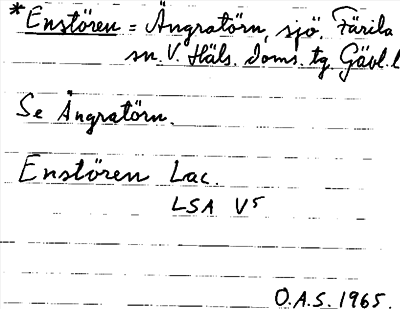 * Enstören = Ängratörn, sjö. Färila
sn. V. Häls. doms. tg. Gävl. l
Se Ängratörn.
Enstören Lac.
LSA V5
O.A.S. 1965.